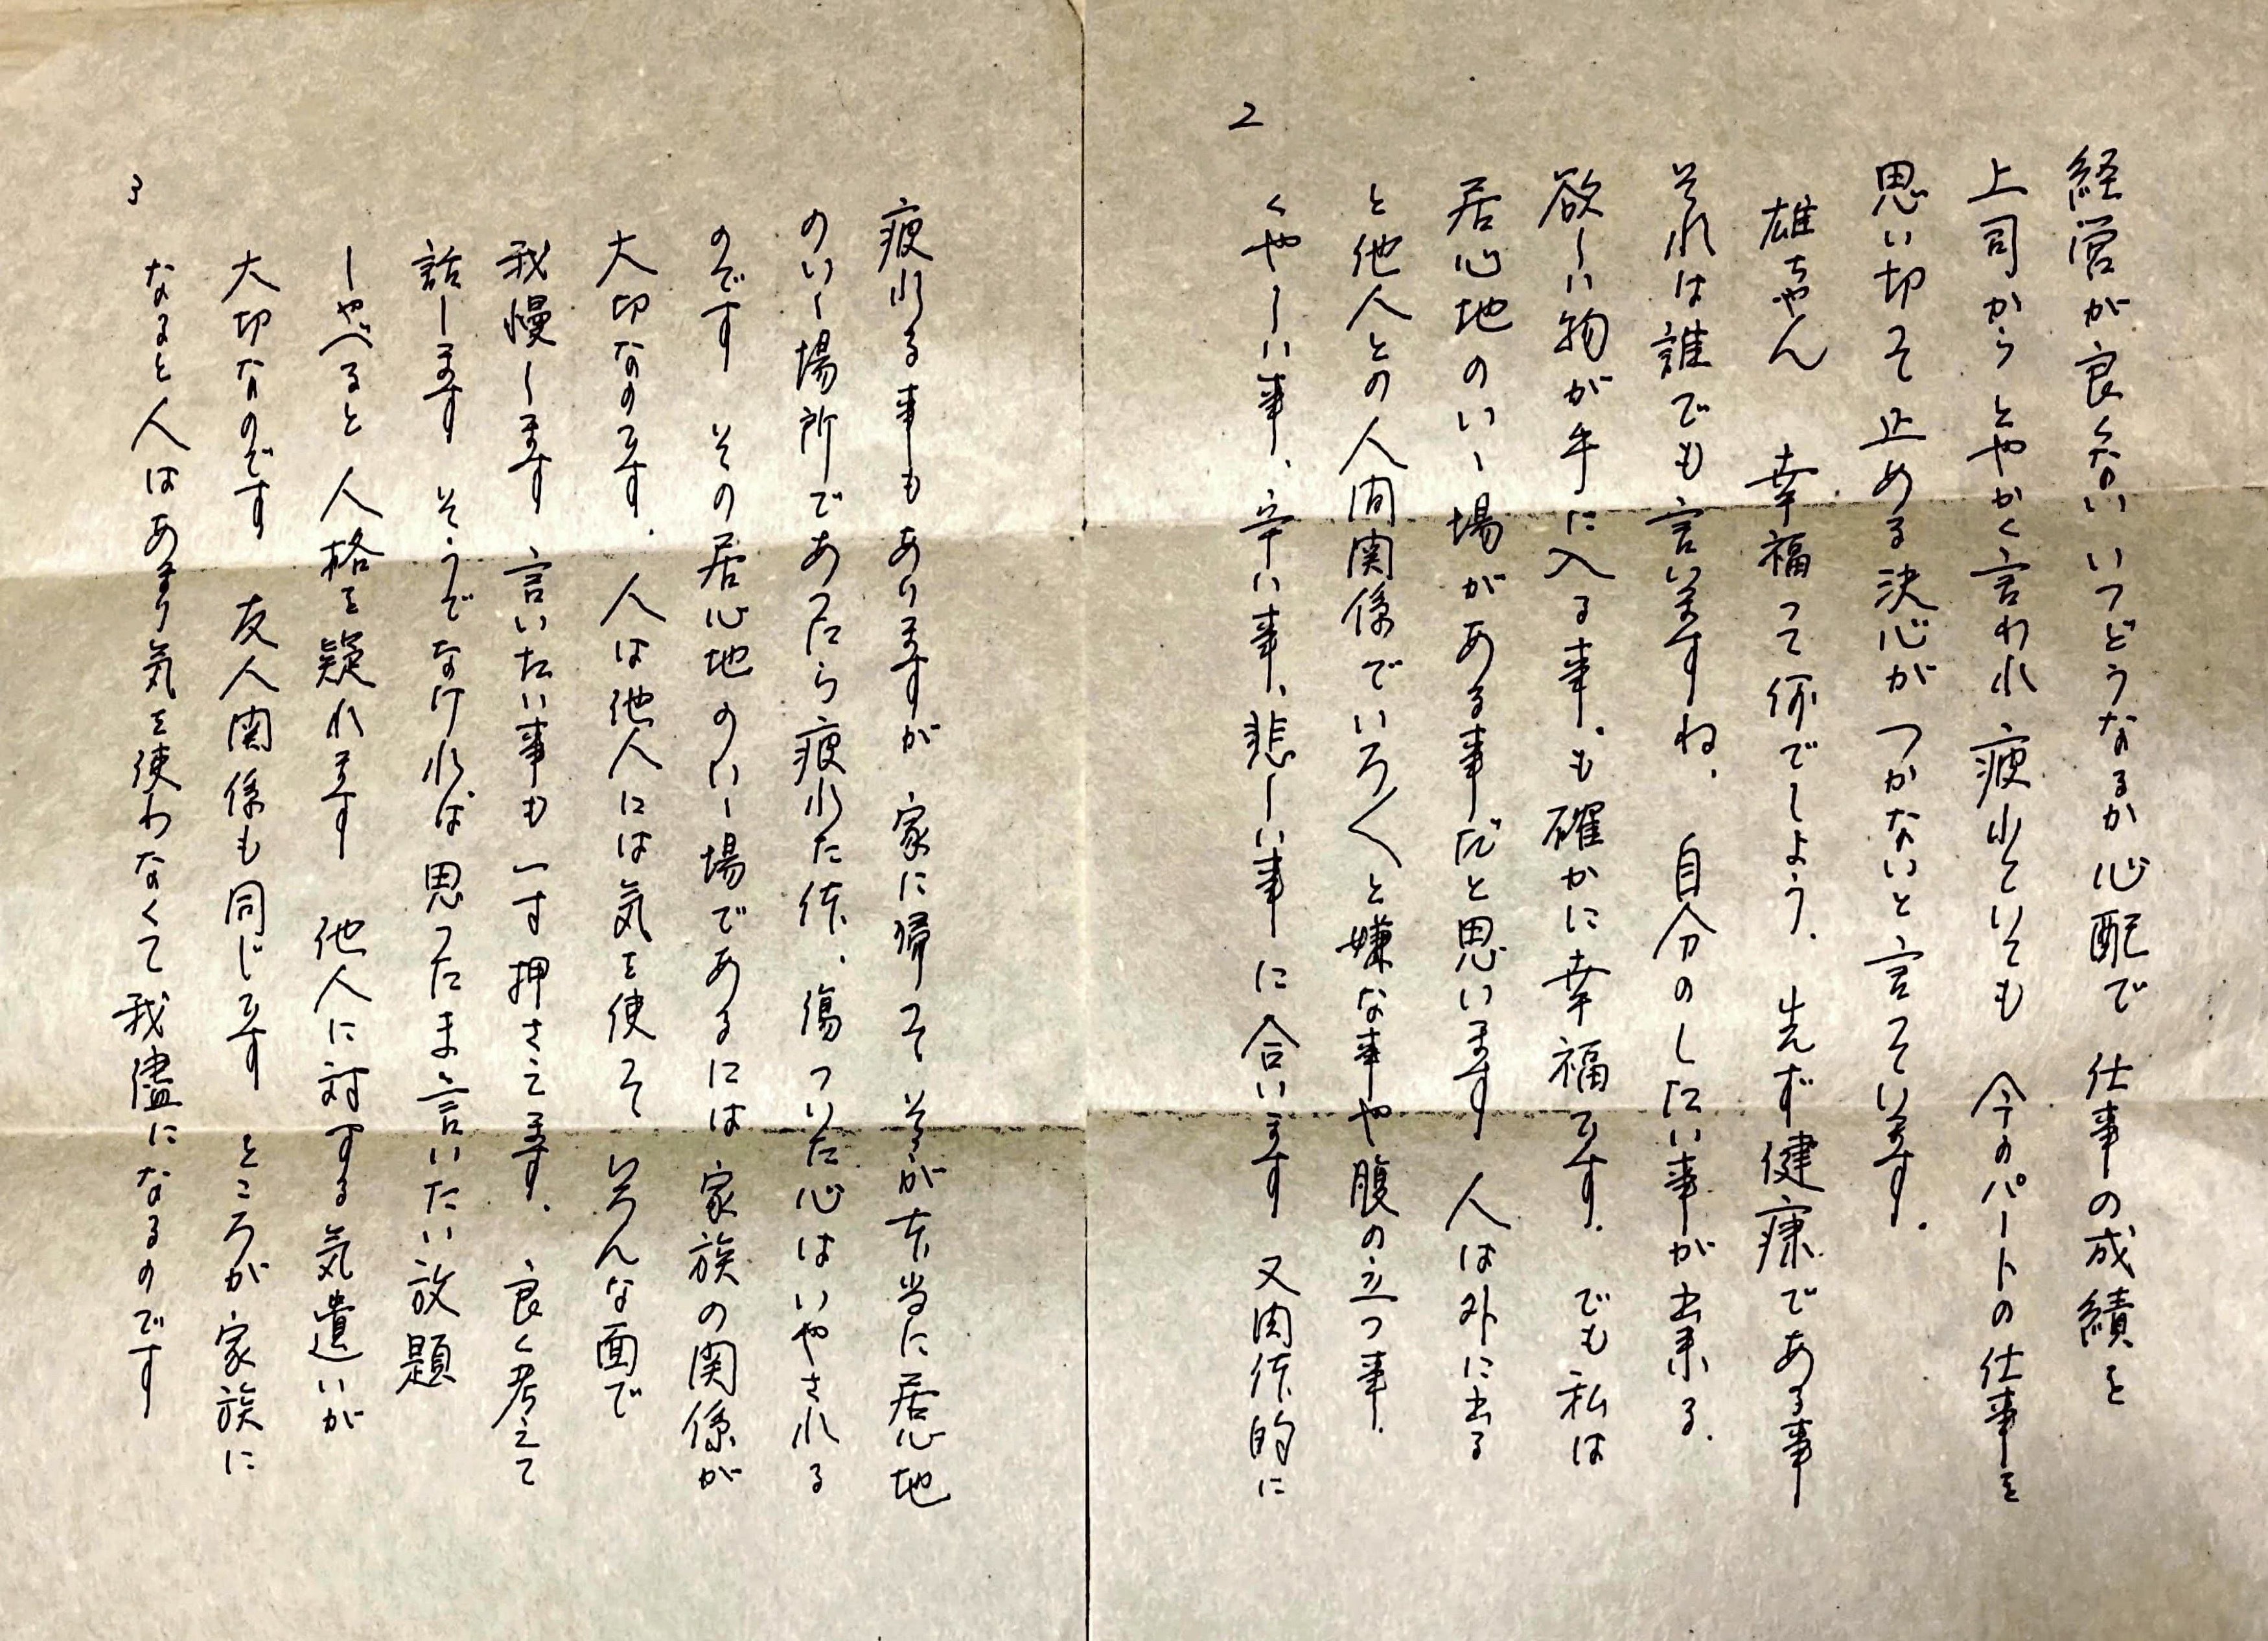 経営が良くないいつどうなるか心配で 仕事の成績を
上司からとやかく言われ 疲れていても 今のパートの仕事を
思い切って止める決心がつかないと言っています.
雄ちゃん 幸福って何でしょう. 先ず健康である事
それは誰でも言いますね. 自分のしたい事が出来る.
欲しい物が手に入る事.も確かに幸福です. でも私は
居心地のいい場がある事だと思います 人は外に出る
と他人との人間関係でいろ〱と嫌な事や腹の立つ事.
くやしい事、辛い事、悲しい事に合います 又肉体的に
2
疲れる事もありますが 家に帰って そこが本当に居心地
のいい場所であったら疲れた体、傷ついた心はいやされる
のです その居心地のいい場であるには 家族の関係が
大切なのです. 人は他人には気を使って いろんな面で
我慢します 言いたい事も一寸押さえます. 良く考えて
話します そうでなければ思ったまゝ言いたい放題
しゃべると人格を疑れます 他人に対する気遣いが
大切なのです 友人関係も同じです ところが家族に
なると人はあまり気を使わなくて我儘になるのです
3